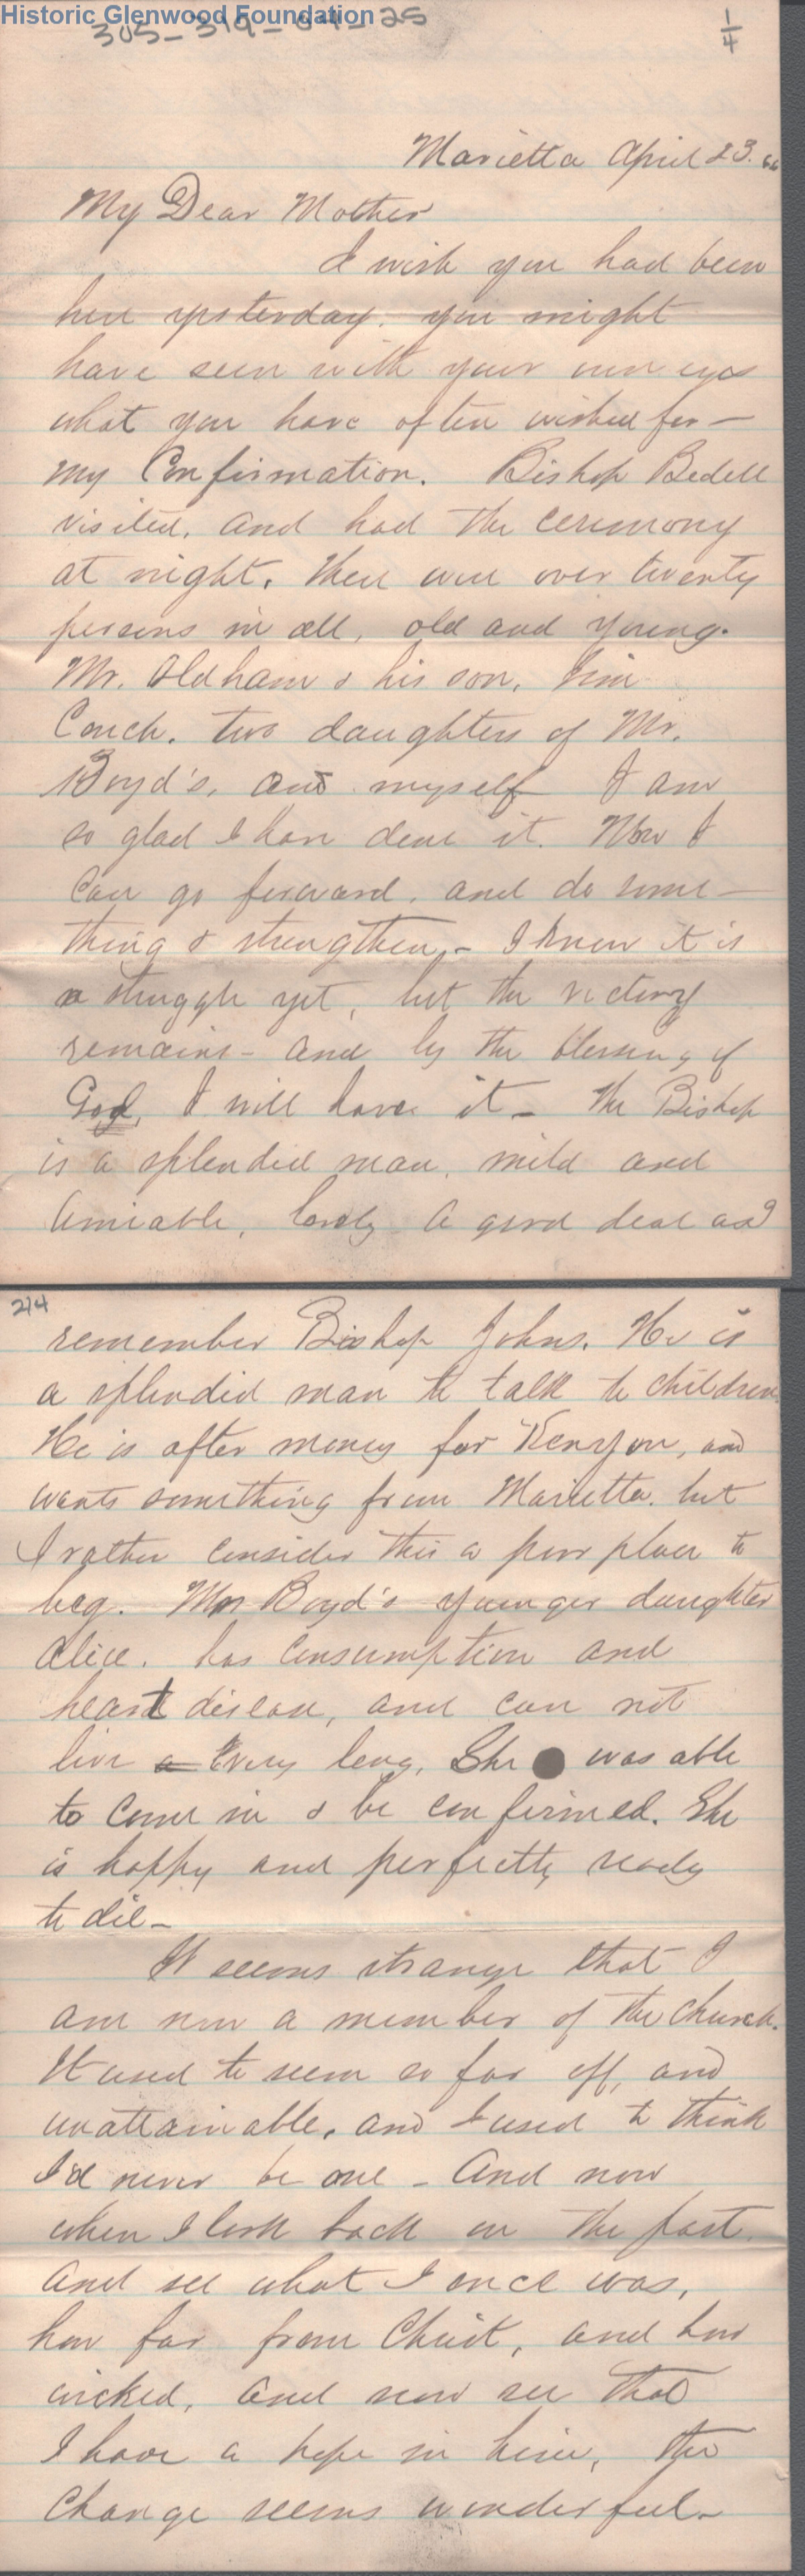 Historic Glenwood Foundation
305-319-04-25
1/4
Marietta April 23. 66
My Dear Mother
I wish you had been
here yesterday. you might
have seen with your own eyes
what you have often wished for —
my Confirmation. Bishop Bedell
visited, and had the ceremony
at night. There were over twenty
persons in all, old and young.
Mr. Oldham & his son, Jim
Couch. two daughters of Mr.
Boyd's, and myself I am
so glad I have done it. Now I
can go forward, and do some-
thing & strengthen, - I know it is
a struggle yet, but the victory
remains - and by the blessing of
God, I will have it - The Bishop
is a splendid man, mild and
amiable, looks a good deal as I
2/4
remember Bishop Johns. He is
a splendid man to talk to children.
He is after money for Kenyon, and
wants something from Marietta. but
I rather consider this a poor place to
beg. Mr Boyd's younger daughter
Alice. has consumption and
heart disease, and can not
live very long, She was able
to come in & be confirmed. She
is happy and perfectly ready
to die -
It seems strange that I
am now a member of the church.
It used to seem so far off, and
unattainable, and I used to think
I'd never be one - And now
when I look back on the past.
And see what I once was,
how far from Christ, and how
wicked, and now see that
I have a hope in him, the
change seems wonderful -